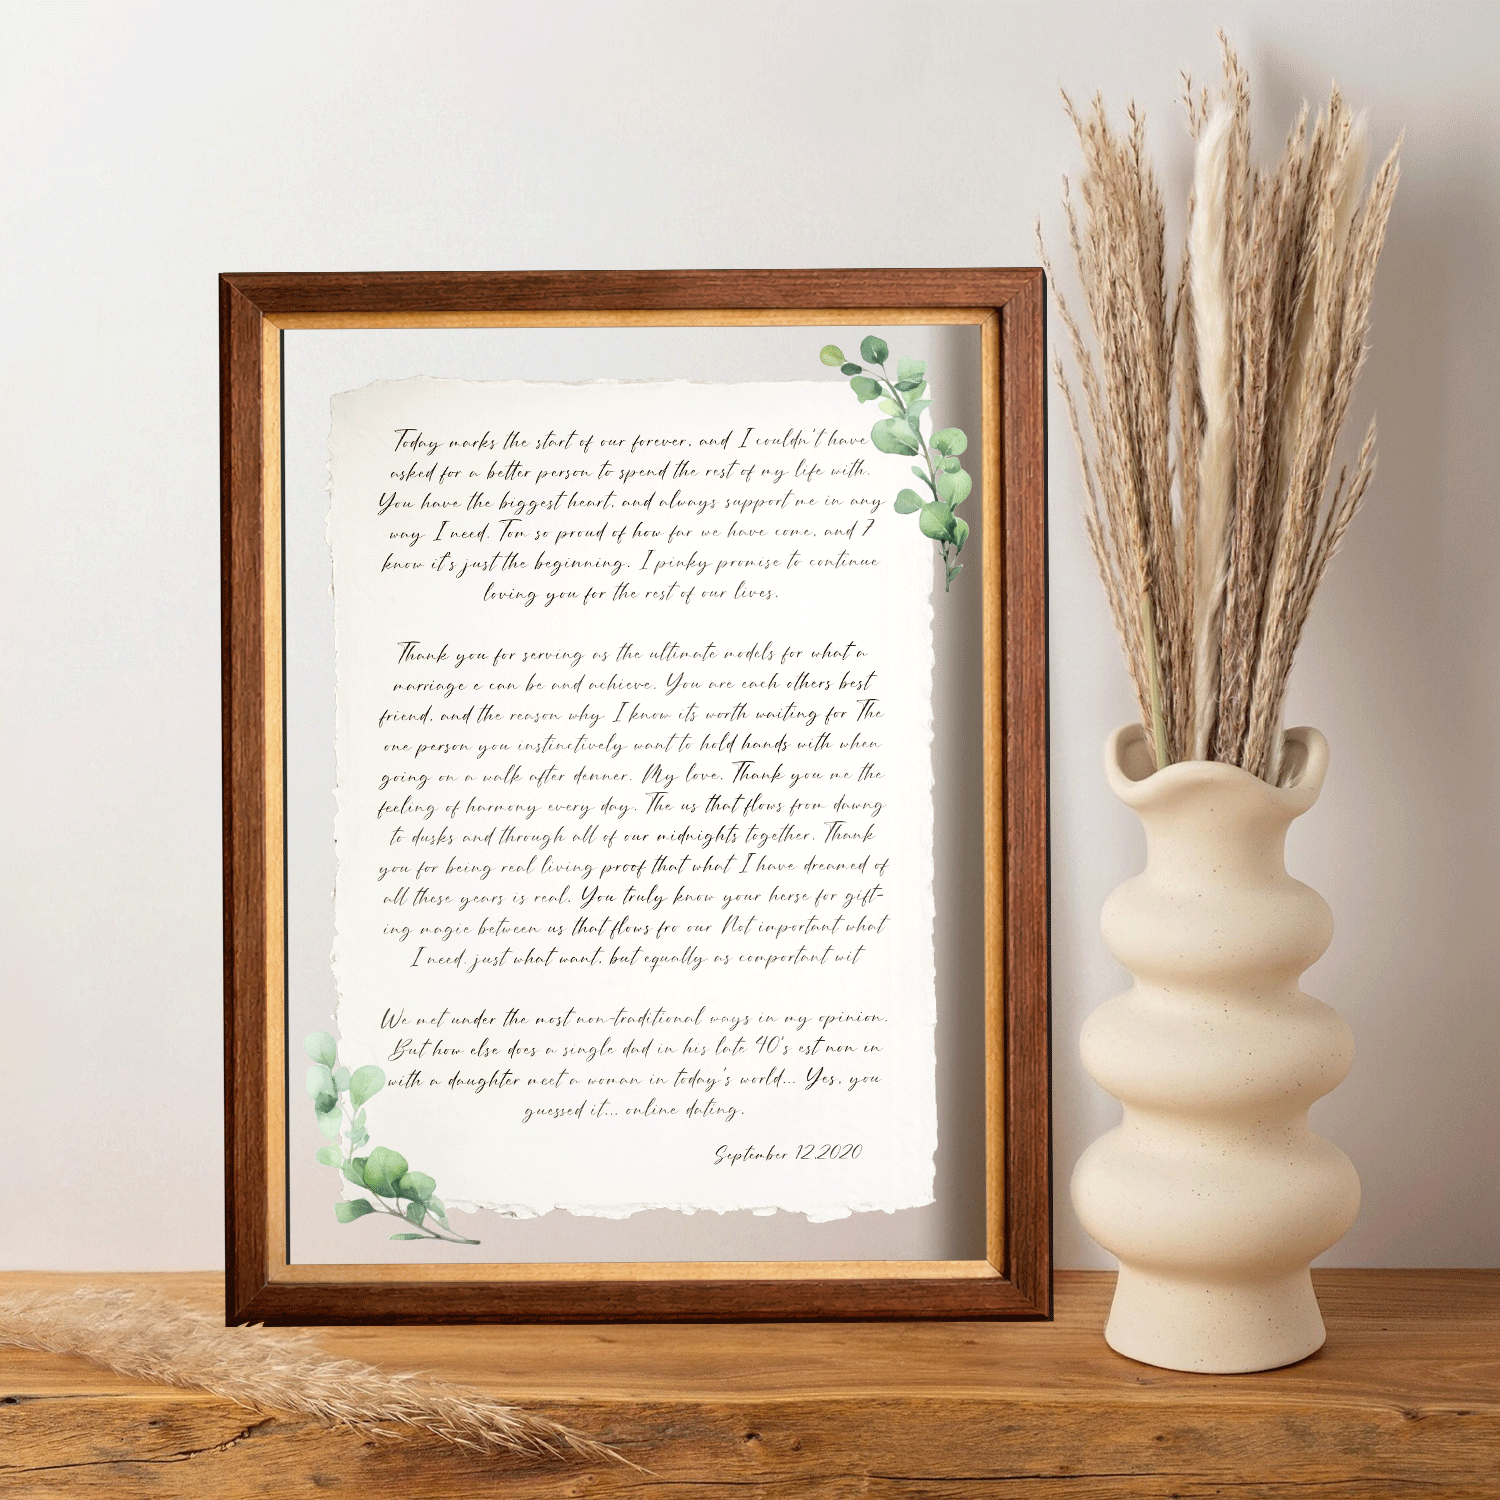 Today marks the start of our forever, and I couldn't have
asked for a better person to spend the rest of my life with.
You have the biggest heart, and always support me in any
way I need. Tom so proud of how far we have come, and 7
know it's just the beginning. I pinky promise to continue
loving you for the rest of our lives.
Thank you for serving as the ultimate models for what a
marriage e can be and achieve. You are each others best
friend, and the reason why I know its worth waiting for The
one person you instinctively want to hold hands with when
going on a walk after denner. My love, Thank you me the
feeling of harmony every day. The us that flows from dawng
to dusks and through all of our midnights together. Thank
you for being real living proof that what I have dreamed of
all these years is real. You truly know your herse for gift-
ing magic between us that flows fro our Not important what
I need, just what want, but equally as comportant wit
We met under the most non-traditional ways in my opinion.
But how else does a single dad in his late 40's est non in
with a daughter meet a woman in today's world... Yes, you
guessed it... online dating.
September 12.2020